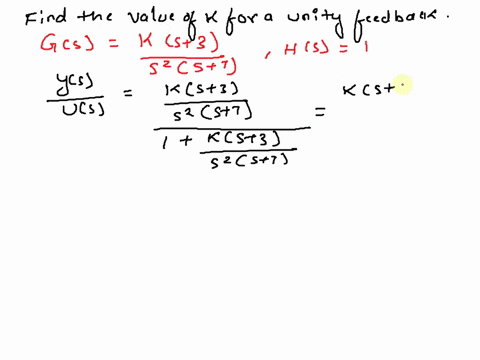 Find the value of K for a unity feedback.
G(s) = K(s+3) / s²(s+7) , H(s) = 1
y(s) / U(s) = K(s+3) / s²(s+7) / 1 + K(s+3) / s²(s+7) = K(s+